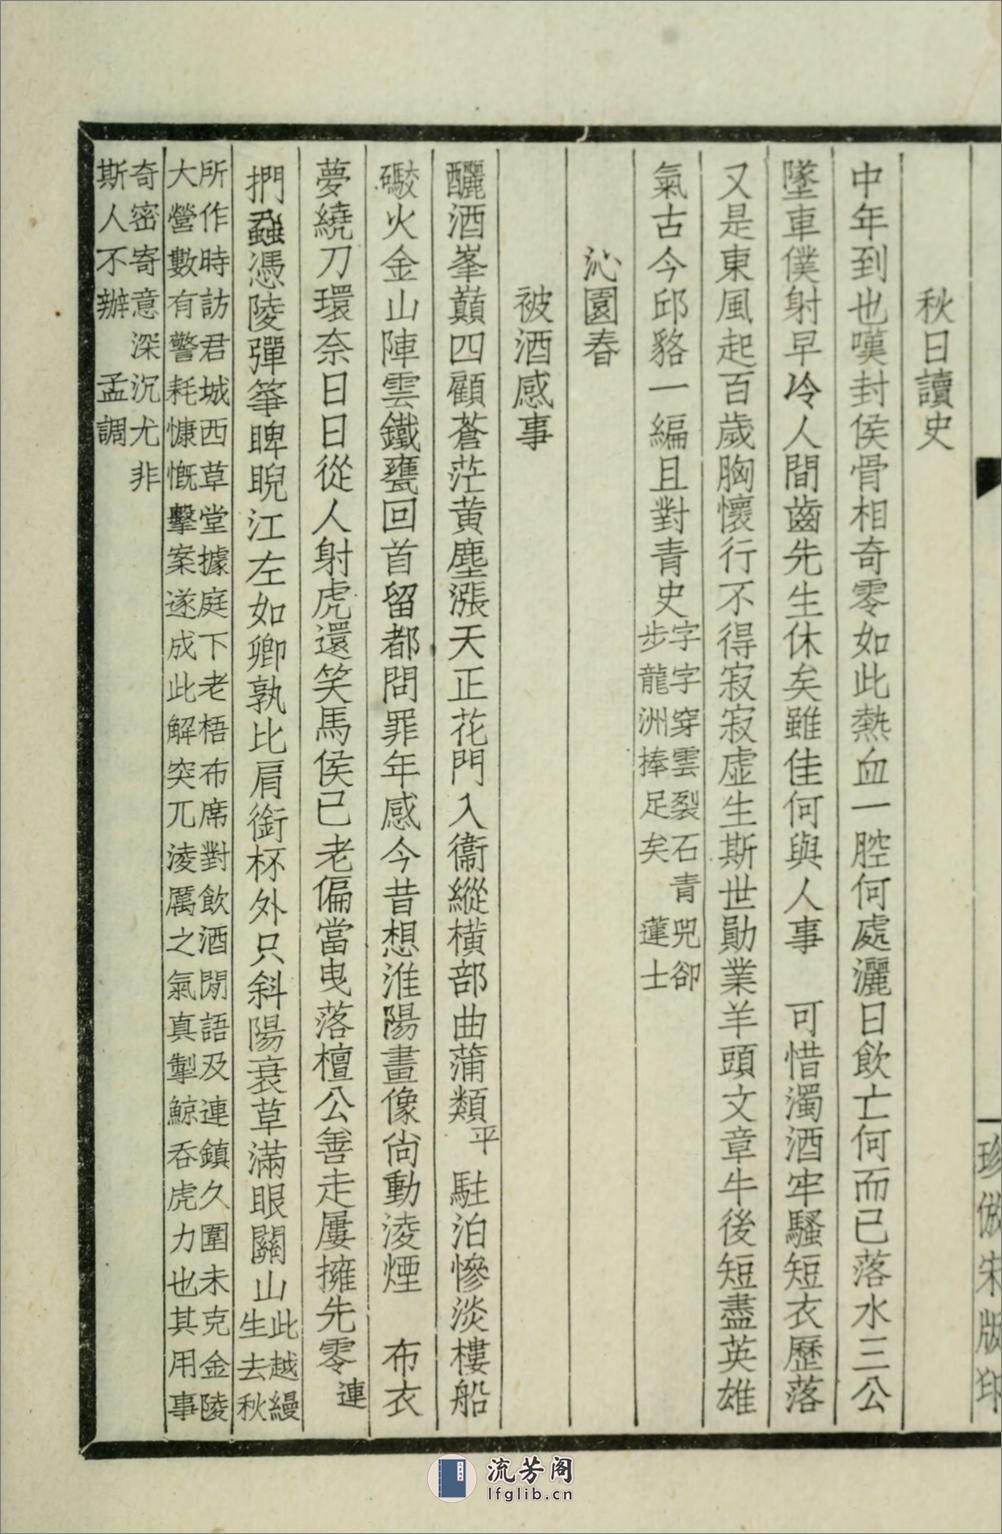 珍倣宋版印
秋日讀史
中年到也嘆封侯骨相奇零如此熱血一腔何處灑日飲亡何而已落水三公
墜車僕射早冷人間齒先生休矣雖佳何與人事　可惜濁酒牢騷短衣歷落
又是東風起百歲胸懷行不得寂寂虛生斯世勛業羊頭文章牛後短盡英雄
氣古今邱貉一編且對青史
字字穿雲裂石青兕卻
步龍洲捧足矣　蓮士
沁園春
被酒感事
釃酒峯巔四顧蒼茫黃塵漲天正花門入衞縱橫部曲蒲類平　駐泊慘淡樓船
礮火金山陣雲鐵甕回首留都問罪年感今昔想淮陽畫像尙動淩煙　布衣
夢繞刀環奈日日從人射虎還笑馬侯已老偏當曳落檀公善走屢擁先零連
捫蝨憑陵彈箏睥睨江左如卿孰比肩銜杯外只斜陽衰草滿眼關山
此越縵
生去秋
所作時訪君城西草堂據庭下老梧布席對飲酒閒語及連鎮久圍未克金陵
大營數有警耗慷慨擊案遂成此解突兀淩厲之氣真掣鯨呑虎力也其用事
奇密寄意深沉尤非
斯人不辦　孟調
流芳阁
lfglib.cn